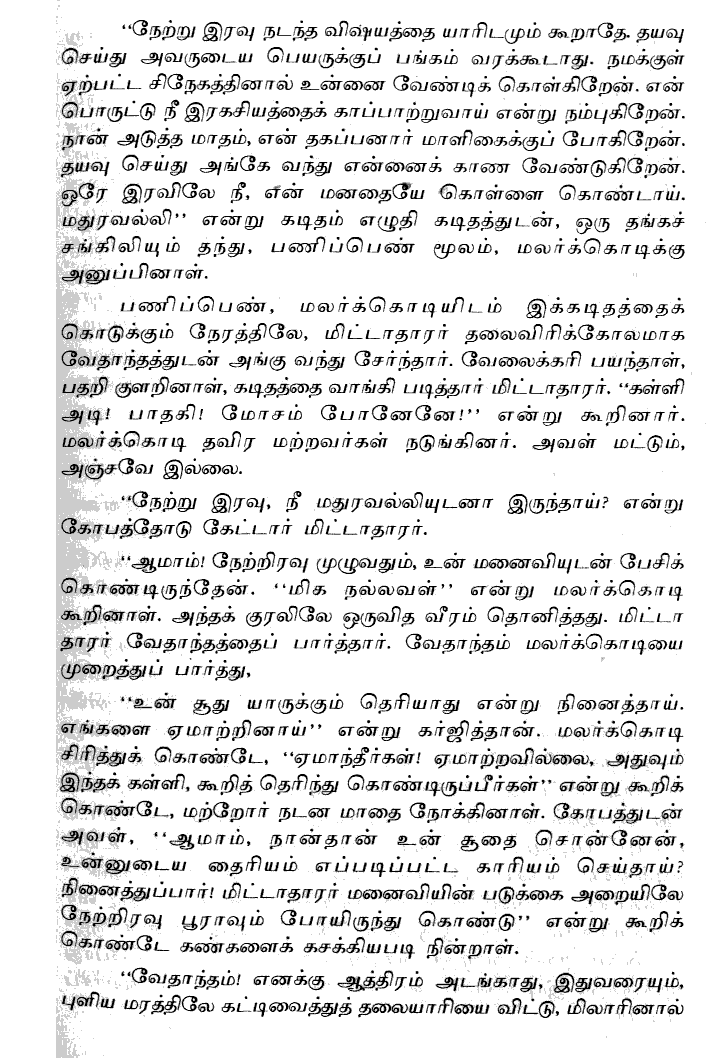 “நேற்று இரவு நடந்த விஷயத்தை யாரிடமும் கூறாதே. தயவு
செய்து அவருடைய பெயருக்குப் பங்கம் வரக்கூடாது. நமக்குள்
ஏற்பட்ட சிநேகத்தினால் உன்னை வேண்டிக் கொள்கிறேன். என்
பொருட்டு நீ இரகசியத்தைக் காப்பாற்றுவாய் என்று நம்புகிறேன்.
நான் அடுத்த மாதம், என் தகப்பனார் மாளிகைக்குப் போகிறேன்.
தயவு செய்து அங்கே வந்து என்னைக் காண வேண்டுகிறேன்.
ஒரே இரவிலே நீ, என் மனதையே கொள்ளை கொண்டாய்.
மதுரவல்லி” என்று கடிதம் எழுதி கடிதத்துடன், ஒரு தங்கச்
சங்கிலியும் தந்து, பணிப்பெண் மூலம், மலர்க்கொடிக்கு
அனுப்பினாள்.
பணிப்பெண், மலர்க்கொடியிடம் இக்கடிதத்தைக்
கொடுக்கும் நேரத்திலே, மிட்டாதாரர் தலைவிரிக்கோலமாக
வேதாந்தத்துடன் அங்கு வந்து சேர்ந்தார். வேலைக்கரி பயந்தாள்,
பதறி குளறினாள், கடிதத்தை வாங்கி படித்தார் மிட்டாதாரர். “கள்ளி
அடி! பாதகி! மோசம் போனேனே!” என்று கூறினார்.
மலர்க்கொடி தவிர மற்றவர்கள் நடுங்கினர். அவள் மட்டும்,
அஞ்சவே இல்லை.
“நேற்று இரவு, நீ மதுரவல்லியுடனா இருந்தாய்? என்று
கோபத்தோடு கேட்டார் மிட்டாதாரர்.
“ஆமாம்! நேற்றிரவு முழுவதும், உன் மனைவியுடன் பேசிக்
கொண்டிருந்தேன். “மிக நல்லவள்” என்று மலர்க்கொடி
கூறினாள். அந்தக் குரலிலே ஒருவித வீரம் தொனித்தது. மிட்டா
தாரர் வேதாந்தத்தைப் பார்த்தார். வேதாந்தம் மலர்க்கொடியை
முறைத்துப் பார்த்து,
“உன் சூது யாருக்கும் தெரியாது என்று நினைத்தாய்.
எங்களை ஏமாற்றினாய்” என்று கர்ஜித்தான். மலர்க்கொடி
சிரித்துக் கொண்டே, “ஏமாந்தீர்கள்! ஏமாற்றவில்லை, அதுவும்
இந்தக் கள்ளி, கூறித் தெரிந்து கொண்டிருப்பீர்கள்” என்று கூறிக்
கொண்டே, மற்றோர் நடன மாதை நோக்கினாள். கோபத்துடன்
அவள், “ஆமாம், நான்தான் உன் சூதை சொன்னேன்,
உன்னுடைய தைரியம் எப்படிப்பட்ட காரியம் செய்தாய்?
நினைத்துப்பார்! மிட்டாதாரர் மனைவியின் படுக்கை அறையிலே
நேற்றிரவு பூராவும் போயிருந்து கொண்டு” என்று கூறிக்
கொண்டே கண்களைக் கசக்கியபடி நின்றாள்.
“வேதாந்தம்! எனக்கு ஆத்திரம் அடங்காது, இதுவரையும்,
புளிய மரத்திலே கட்டிவைத்துத் தலையாரியை விட்டு, மிலாரினால்